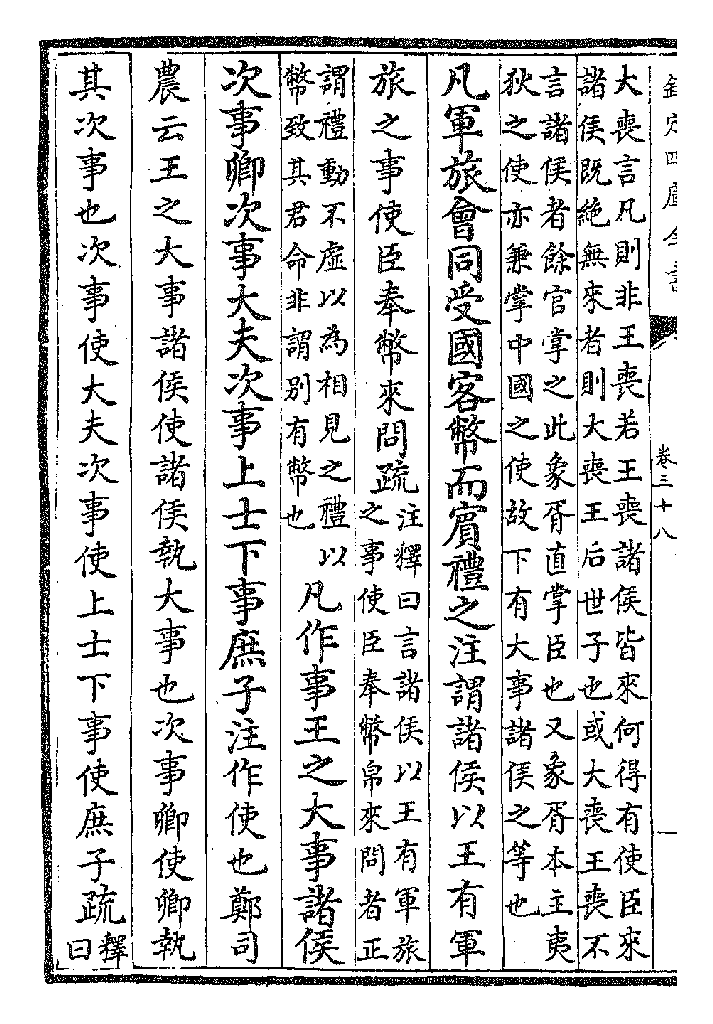 欽定四庫全書
卷三十八
一
大喪言凡則非王喪若王喪諸侯皆來何得有使臣來
諸侯既絶無來者則大喪王后世子也或大喪王喪不
言諸侯者餘官掌之此象胥直掌臣也又象胥本主夷
狄之使亦兼掌中國之使故下有大事諸侯之等也
凡軍旅會同受國客幣而賓禮之注謂諸侯以王有軍
旅之事使臣奉幣來問疏
注釋曰言諸侯以王有軍旅
之事使臣奉幣帛來問者正
謂禮動不虛以為相見之禮以
幣致其君命非謂别有幣也
凡作事王之大事諸侯
次事卿次事大夫次事上士下事庶子注作使也鄭司
農云王之大事諸侯使諸侯執大事也次事卿使卿執
其次事也次事使大夫次事使上士下事使庶子疏
釋
曰